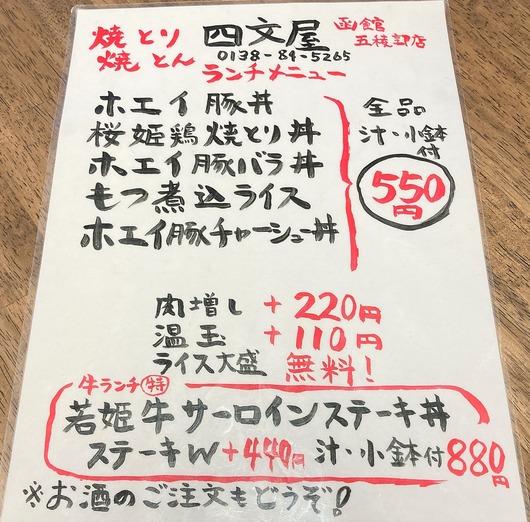 焼とり 四文屋 函館
焼とん 0138-84-5265 五稜郭店
ランチメニュー
ホエイ豚丼
桜姫鶏焼とり丼
ホエイ豚バラ丼
もつ煮込ライス
ホエイ豚チャーシュー丼
全品
汁・小鉢
付
550
円
肉増し +220円
温玉 +110円
ライス大盛 無料!
牛ランチ特
若姫牛サーロインステーキ丼
ステーキW+440円 汁・小鉢付880円
※お酒のご注文もどうぞ!